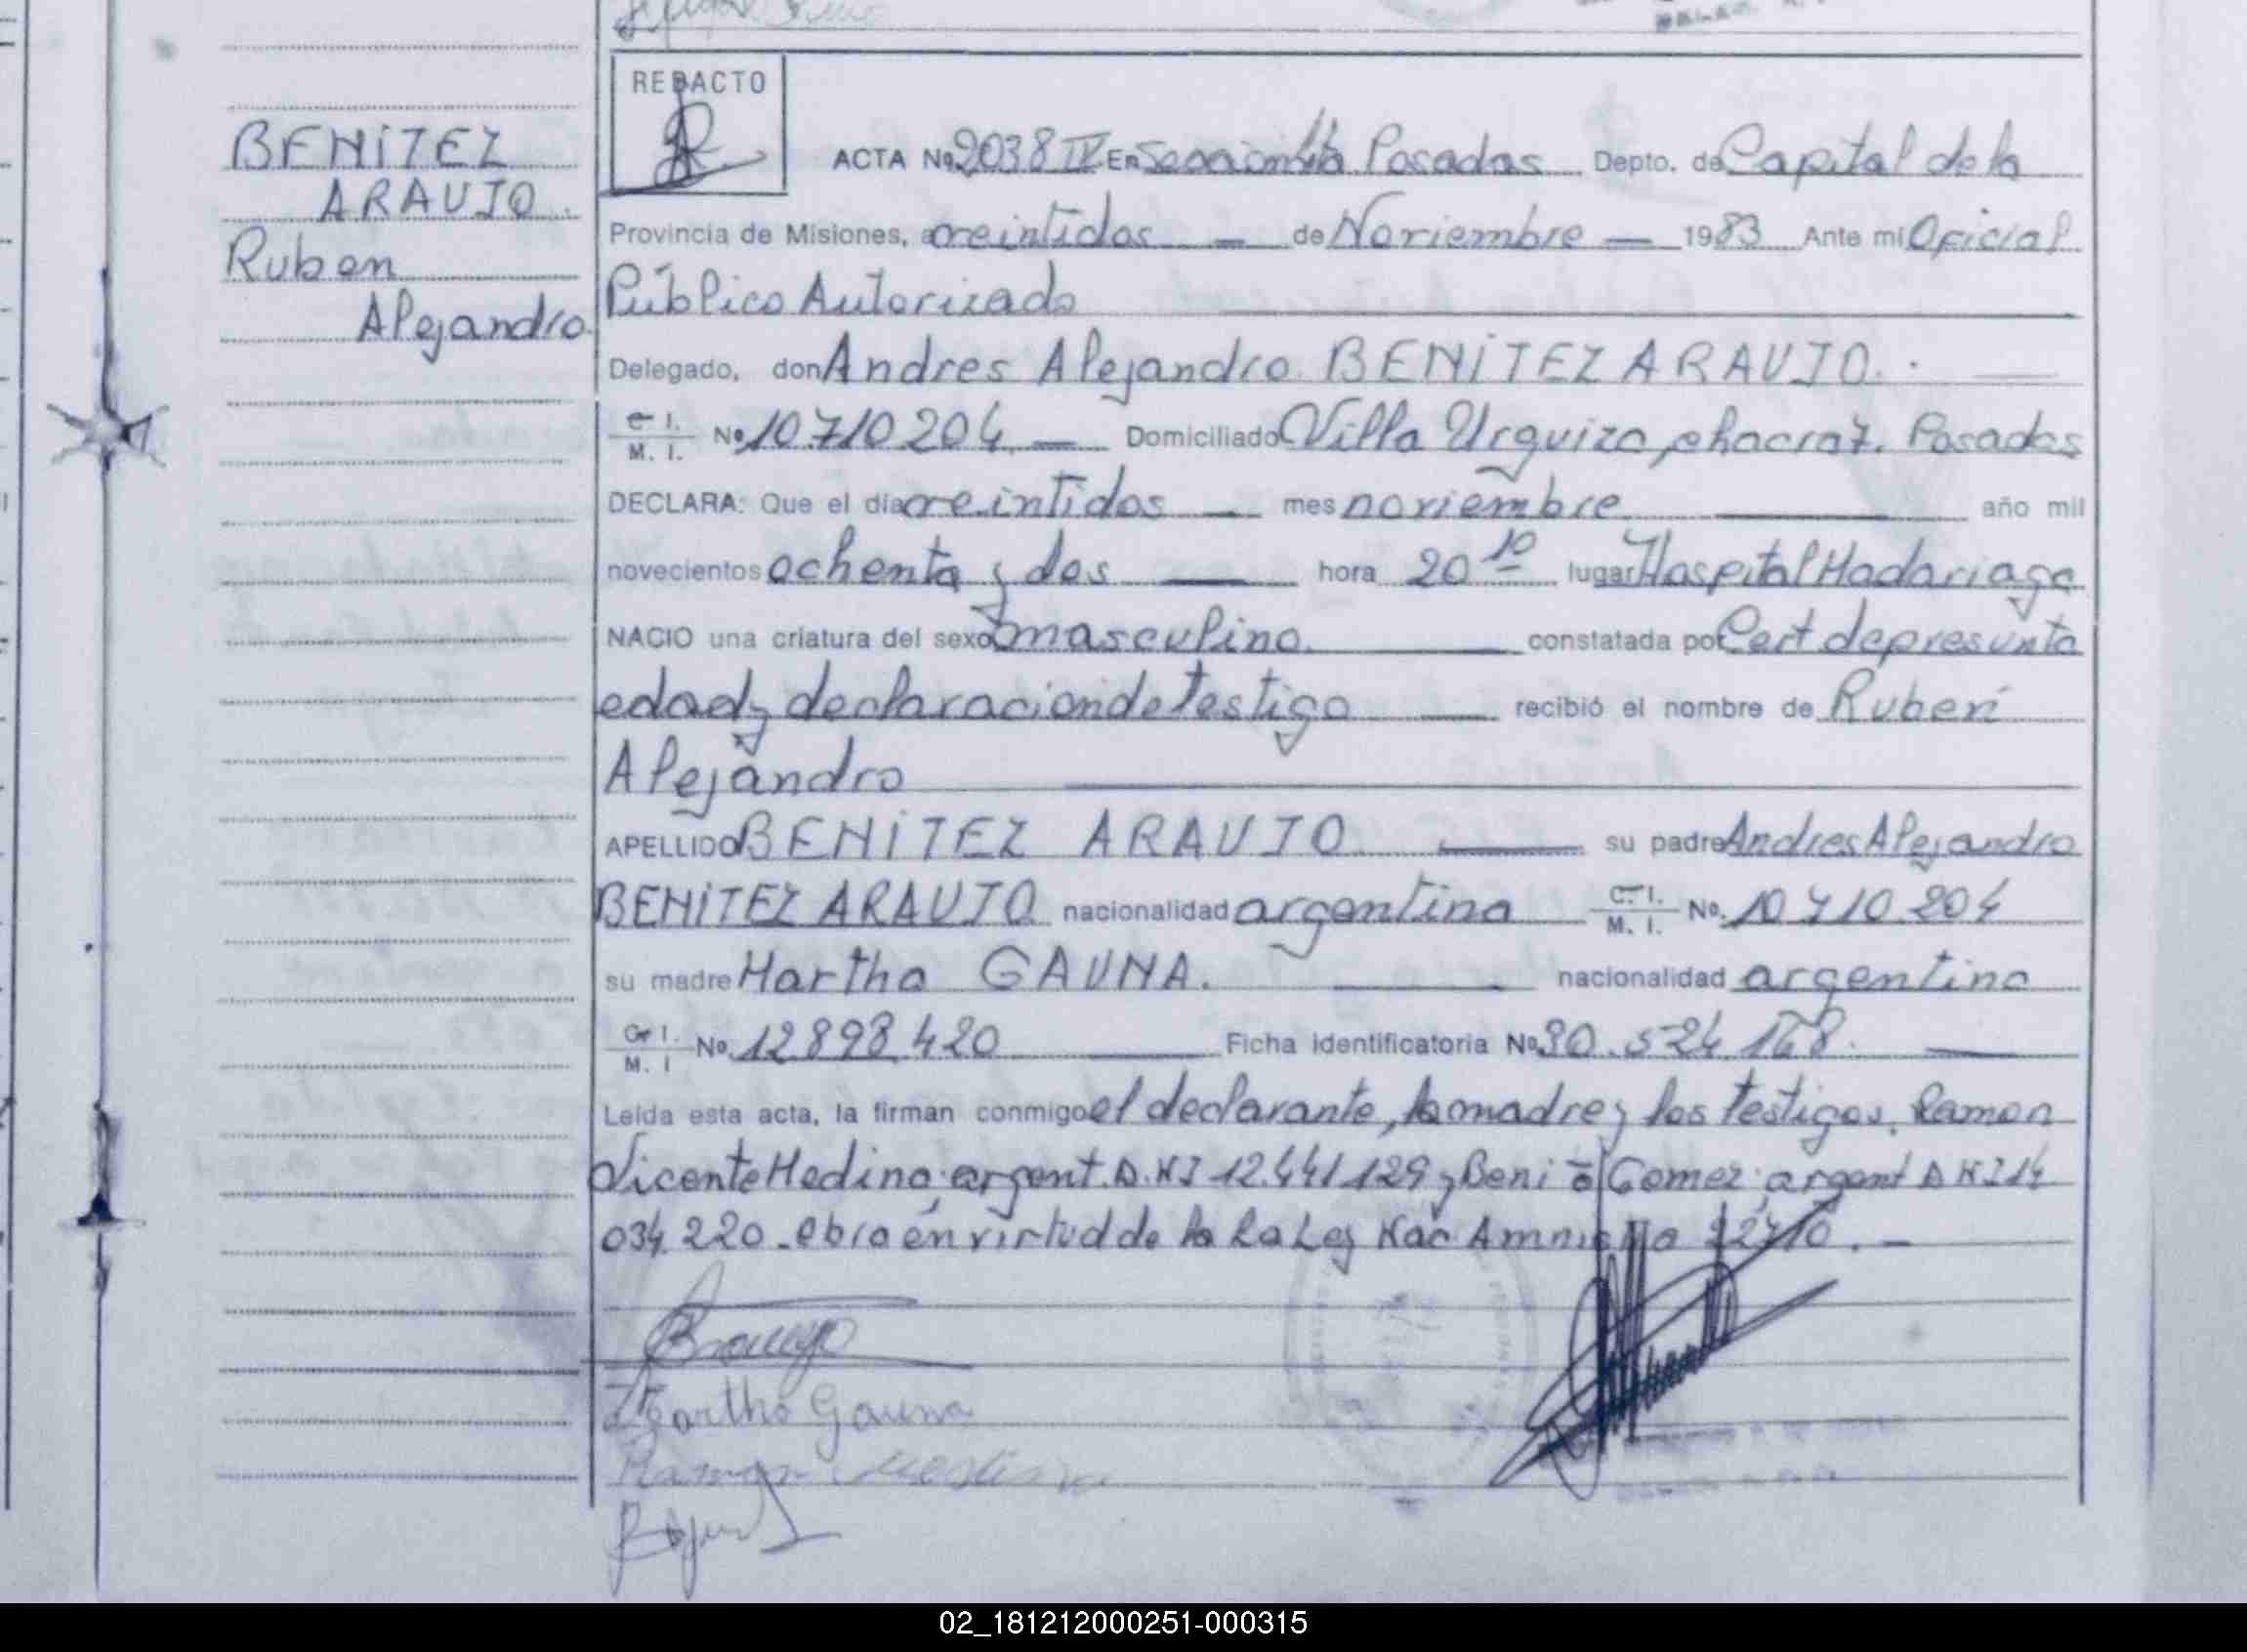 REDACTO
BENITEZ
ARAUJO.
Ruben
Alejandro.
ACTA No 2038 IV En Sección 4ta Posadas Depto. de Capital de la
Provincia de Misiones, a veintidos — de Noviembre — 1983 Ante mi Oficial
Público Autorizado
Delegado, don Andres Alejandro BENITEZ ARAUJO.
C. I. / M. I. No 10.710.204 — Domiciliado Villa Urquiza, chacra 7. Posadas
DECLARA: Que el día veintidos — mes noviembre — año mil
novecientos ochenta y dos — hora 20 10 lugar Hospital Madariaga
NACIO una criatura del sexo masculino. — constatada por Cert de presunta
edad y declaracion de testigo — recibió el nombre de Ruben
Alejandro —
APELLIDO BENITEZ ARAUJO — su padre Andres Alejandro
BENITEZ ARAUJO nacionalidad argentina C. I. / M. I. No. 10 710 204
su madre Martha GAUNA. — nacionalidad argentina
C. I. / M. I No. 12 898 420 — Ficha identificatoria No 30.524 168. —
Leída esta acta, la firman conmigo el declarante, la madre y los testigos. Ramon
Vicente Medina, argent. D.N.I 12.441 129 y Benito Gomez, argent D N I 14
034.220 - obra en virtud de la La Ley Nac Amnistia 22710. —
Araujo
Martha Gauna
Ramon Medina
02_181212000251-000315